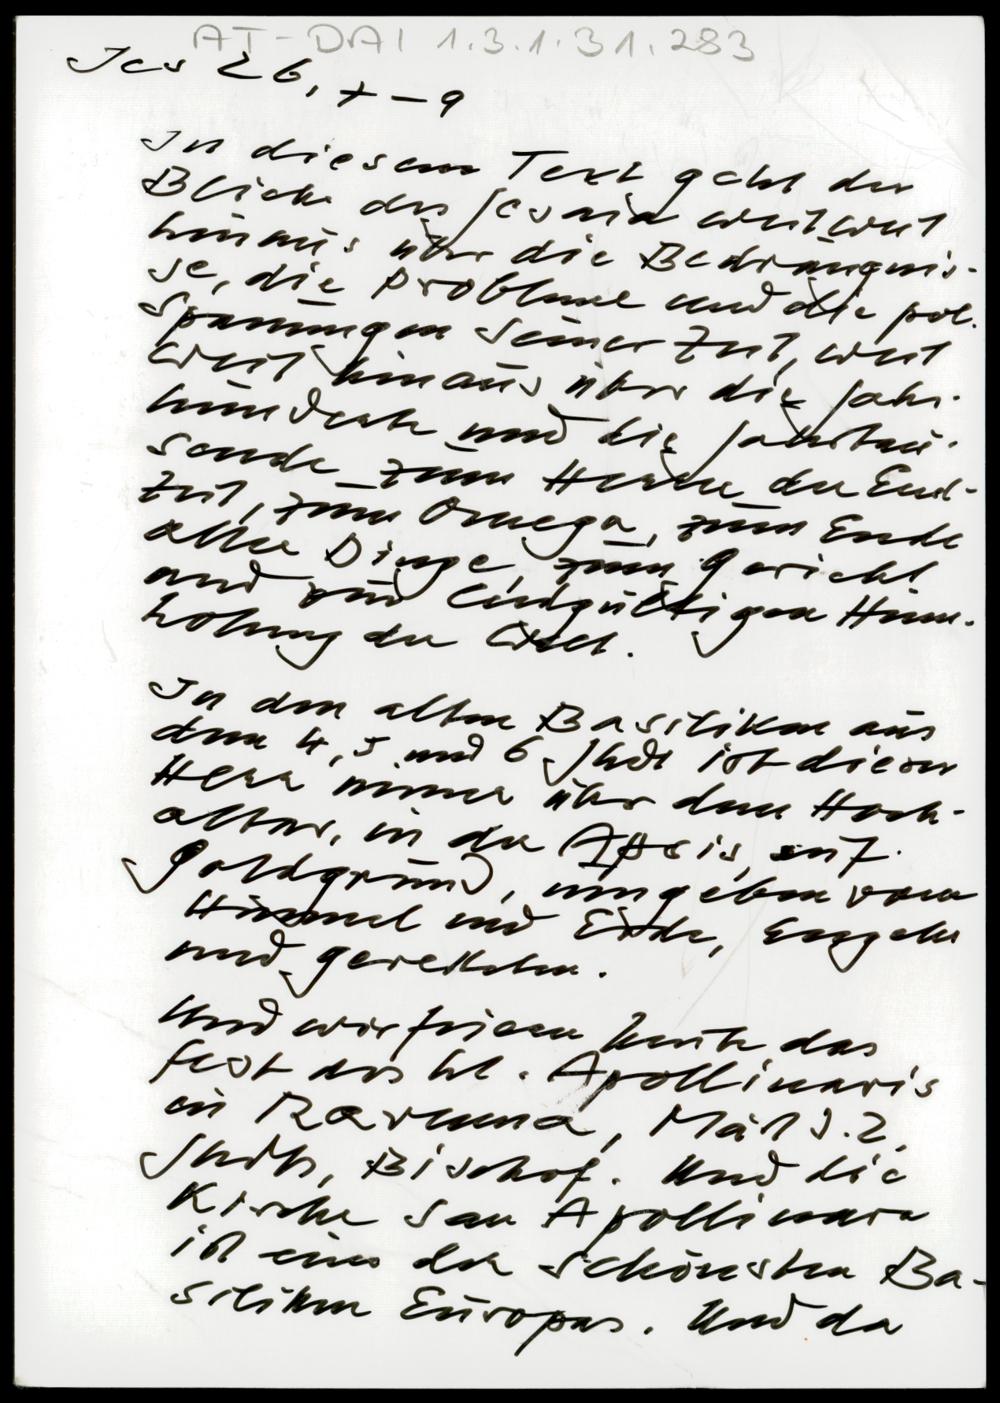 AT-DAI 1.3.1.31.283
Jes 26, 7-9
In diesem Text geht der
Blick des Jesaia weit weit
hinaus über die Bedrängnis-
se, die Probleme und die pol.
Spannungen seiner Zeit, weit
weit hinaus über die Jahr-
hunderte und die Jahrtau-
sende zum Herrn der End-
zeit, zum Omega, zum Ende
aller Dinge, zum Gericht
und zur endgültigen Heim-
holung der Welt.
In den alten Basiliken aus
dem 4, 5 und 6 Jhdt ist dieser
Herr immer über dem Hoch-
altar, in der Apsis, auf
Goldgrund, umgeben vom
Himmel und Erde, Engeln
und gerechten.
Und wir feiern heute das
Fest des hl. Apollinaris
in Ravenna, Märt d. 2.
Jhdts, Bischof. Und die
Kirche San Apollinare
ist eine der schönsten Ba-
siliken Europas. Und da